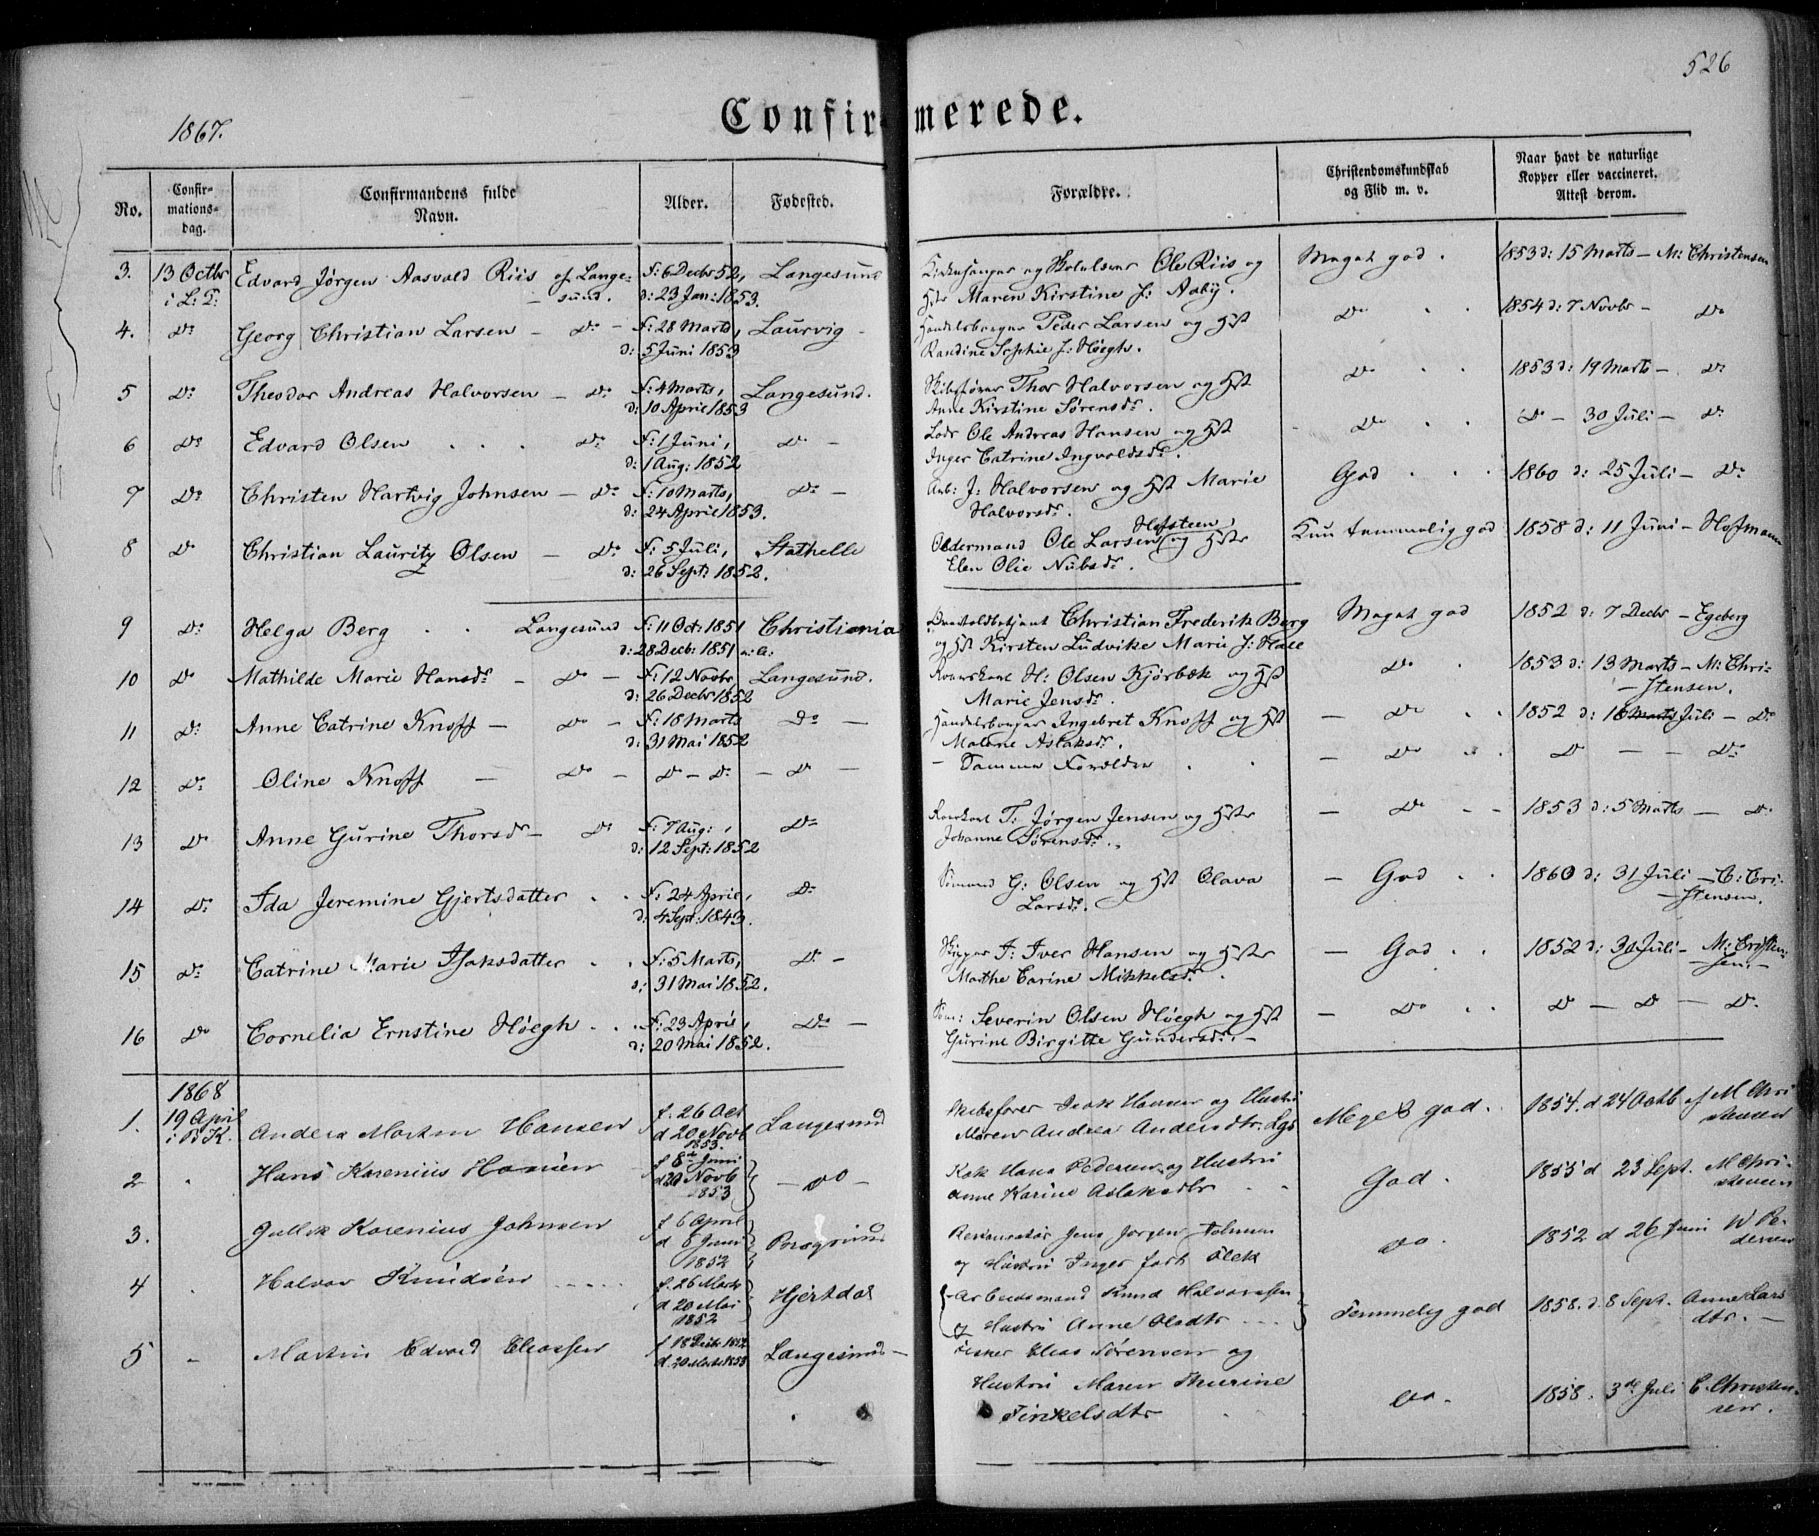 526
1867.
Confirmerede.
No.
Confir-
mations-
dag.
Confirmandens fulde
Navn.
Alder.
Fødested.
Forældre.
Christendomskundskab
og Flid m. v.
Naar havt de naturlige
Kopper eller vaccineret.
Attest derom.
3. 13 Octbr Edvard Jørgen Aasvald Riis af Lange- f: 6 Decbr 52, Langesund Kirkesanger og Ole Riis og Meget god. 1853 d: 15 Marts - M: Christensen
i L: T: sund. d: 23 Jan: 1853. Hst Maren Kirstine f: Aaby.
4. Do Georg Christian Larsen - Do - f: 28 Marts, Laurvig - Handelsborger Peder Larsen og Hst Do 1854 d: 7 Novbr - Do
d: 5 Juni 1853 Randine Sophie f: Høegh.
5 Do Theodor Andreas Halvorsen - Do f: 4 Marts, Langesund. Skibsfører Thor Halvorsen og Hst Do 1853 d: 19 Marts - Do
d: 10 April 1853 Anne Kirstine Sørensdr.
6 Do Edvard Olsen Do f: 1 Juni, Do - Lods Ole Andreas Hansen og Hst Do Do - 30 Juli - Do
d: 1 Aug: 1852 Inger Catrine Ingvoldsdr.
7 Do Christen Hartvig Johnsen - Do f: 10 Marts, Do - Arb: J: Halvorsen og Hst Marie God 1860 d: 25 Juli - Do
d: 24 April 1853. Halvorsdr.
8 Do Christian Lauritz Olsen - Do f: 5 Juli, Stathelle Oldermand Ole Larsen Hofsteen, og Hstr Kun temmelig god 1858 d: 11 Juni - Hoffmann
d: 26 Sept: 1852. Elen Olie
9 Do Helga Berg Langesund f: 11 Oct: 1851 Christiania Christian Frederik Berg Meget god 1852 d: 7 Decbr - Egeberg
d: 28 Decb: 1851 og Hst Kirsten Ludvike Marie f:
10 Do Mathilde Marie Hansdr - Do - f: 12 Novbr Langesund. H: Olsen Kjørbæk og Hst Do 1853 d: 13 Marts - M: Chri-
d: 26 Decbr 1852 Marie Jensdr. stensen.
11 Do Anne Catrine Knoff - Do - f: 18 Marts Do - Handelsborger Ingebret Knoff og Hst - Do 1852 d: 18 Marts Juli - Do
d: 31 Mai 1852 Malene Aslaksdr.
12 Do Oline Knoff - Do - Do - Do - Do - Samme Forældre - Do Do - - Do
13 Do Anne Gurine Thorsdr - Do f: 7 Aug:, Do T: Jørgen Jensen og Hstr - Do - - 1853 d: 5 Marts - Do
d: 12 Sept: 1852 Johanne Sørensdr.
14 Do Ida Jeremine Gjertsdatter f: 24 April, Do Sømand G: Olsen og Hst Olava - God 1860 d: 31 Juli - C: Cri-
d: 4 Sept: 1843. Larsdr. stensen.
15 Do Catrine Marie Isaksdatter f: 5 Marts, Do - Skipper I: Iver Hansen og Hstr - God 1852 d: 30 Juli - M: Cristen-
d: 31 Mai 1852. Marthe Carine Mikkelsdr. sen. -
16 Do Cornelia Ernstine Høegh f: 23 April, Do - Søm: Severin Olsen Høegh og Hst - Do Do - Do - Do
d: 20 Mai 1852. Gurine Birgitte Gundersdr. -
1868
1. 19 April Anders Morten Hansen f. 26 Oct Langesund Skibsfører Isak Hansen og Hustru Meget god. 1854. d 24 Octb af M Chri
i B K. d 20 Novb Maren Andrea Andersdtr. Lgs stensen
1853.
2 Hans Karenius Hansen f 8de Juni - do - Kok Hans Pedersen og Hustru God. 1855 d 23 Sept. M Chri-
d 20 Novb Anne Karine Aslaksdtr stensen
1853
3. Karenius Johnsen f 6 April Porsgrund Jens Jørgen do. 1852 d 26 Juni W Pe-
d 6 Juni og Hustru Inger dersen
1852
4 Halvor Knudsen f. 26 Marts Hjertdal Arbeidsmand Knud Halvorssen Temmelig god 1858. d. 8 Sept. Anne Lars
d 20 Mai og Hustru Anne Olsdtr dtr. -
1852
5 Martin Edvard Eliassen f 18 Decbr 1852 Langesund - Fisker Elias Sørensen og do. 1858. 3de Juli C. Christen-
d 20 Marts 1853 Hustru Maren Thurine sen.
Tinkelsdtr